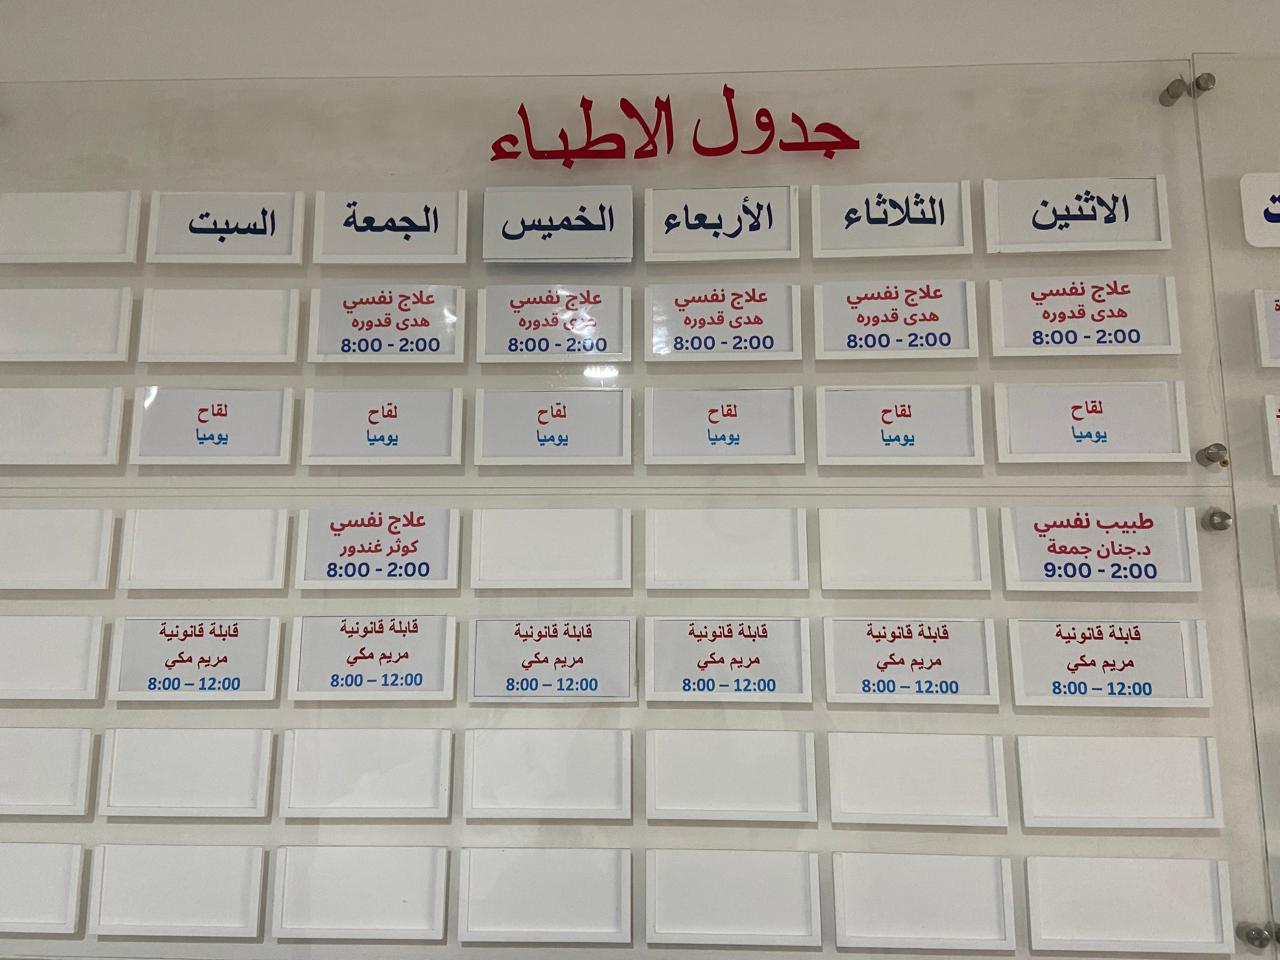 جدول الاطباء
الاثنين
الثلاثاء
الأربعاء
الخميس
الجمعة
السبت
علاج نفسي
هدى قدوره
8:00 - 2:00
علاج نفسي
هدى قدوره
8:00 - 2:00
علاج نفسي
هدى قدوره
8:00 - 2:00
علاج نفسي
هدى قدوره
8:00 - 2:00
علاج نفسي
هدى قدوره
8:00 - 2:00
لقاح
يوميا
لقاح
يوميا
لقاح
يوميا
لقاح
يوميا
لقاح
يوميا
لقاح
يوميا
طبيب نفسي
د.جنان جمعة
9:00 - 2:00
علاج نفسي
كوثر غندور
8:00 - 2:00
قابلة قانونية
مريم مكي
8:00 – 12:00
قابلة قانونية
مريم مكي
8:00 – 12:00
قابلة قانونية
مريم مكي
8:00 – 12:00
قابلة قانونية
مريم مكي
8:00 – 12:00
قابلة قانونية
مريم مكي
8:00 – 12:00
قابلة قانونية
مريم مكي
8:00 – 12:00